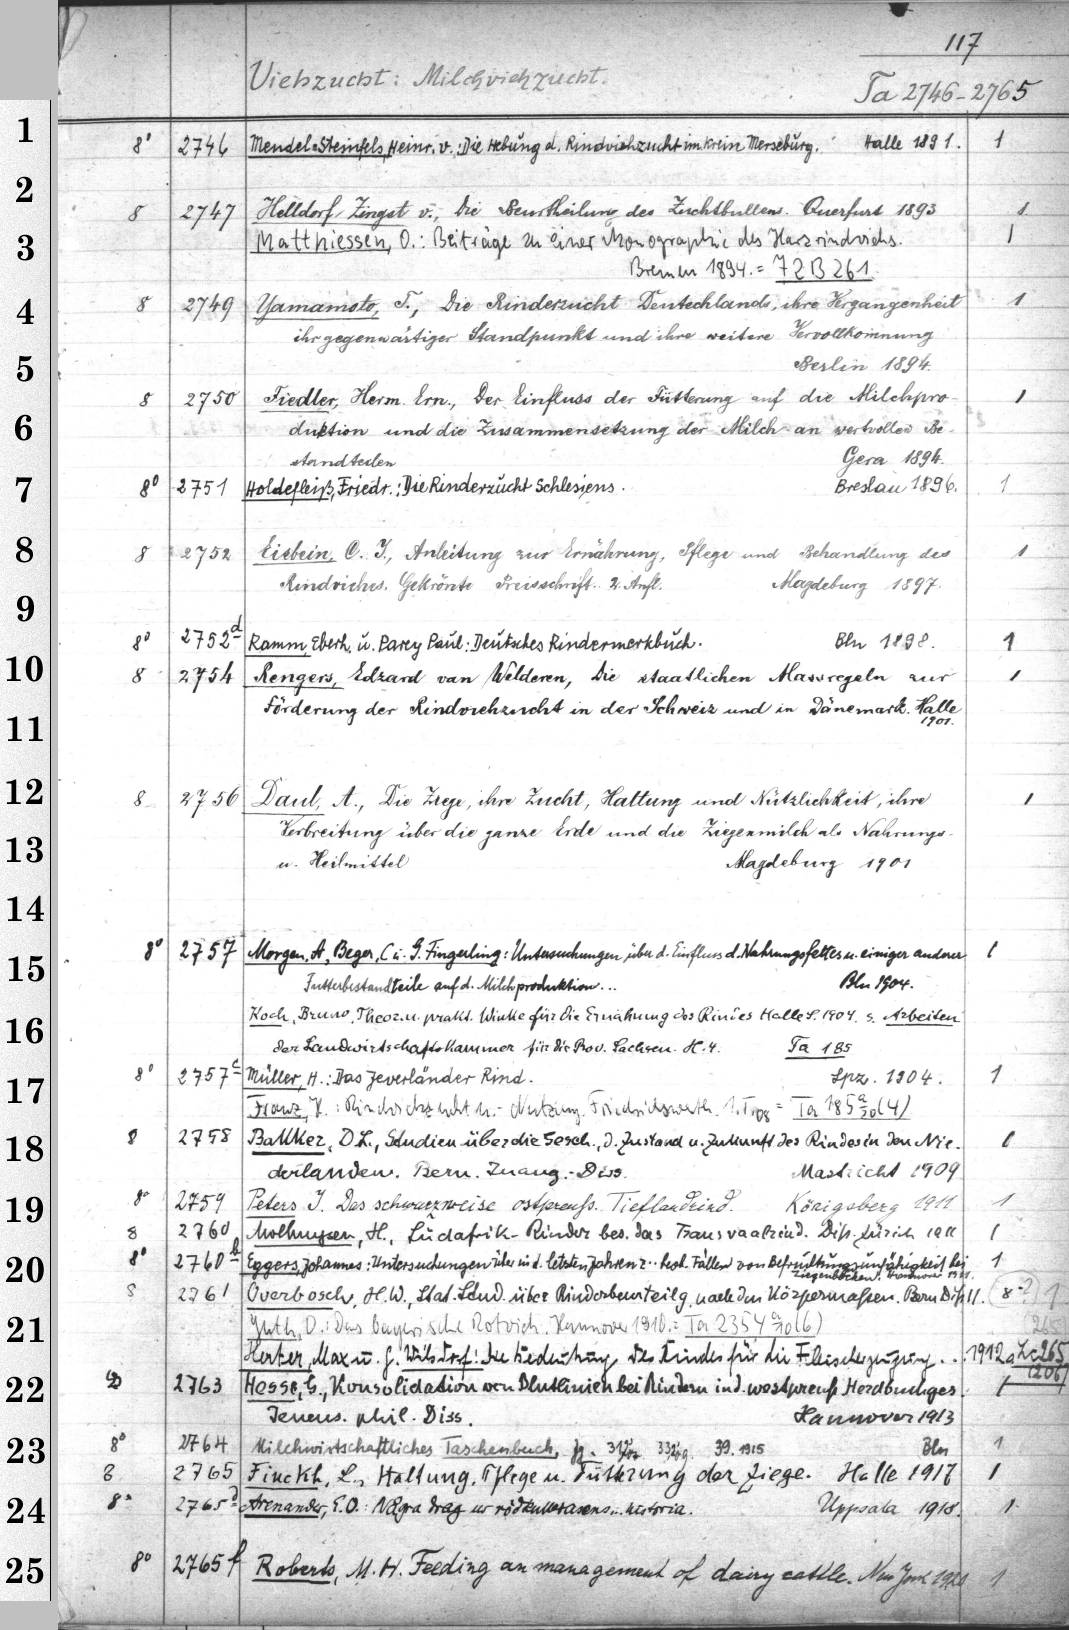 117
Viehzucht: Milchviehzucht.
Ta 2746-2765
1
8° 2746 Mendel-Steinfels, Heinr. v.: Die Hebung d. Rindviehzucht im Kreise Merseburg. Halle 1891. 1
2
8 2747 Helldorf-Zingst v., Die Beurtheilung des Zuchtbullens. Querfurt 1893 1
3
Matthiessen, O.: Beiträge zu einer Monographie des Harzrindviehs. 1
Bremen 1894. = 72 B 261
4
8 2749 Yamamoto, T., Die Rinderzucht Deutschlands, ihre Vergangenheit 1
ihr gegenwärtiger Standpunkt und ihre weitere Vervollkomnung
5
Berlin 1894.
8 2750 Fiedler, Herm. Ern., Der Einfluss der Fütterung auf die Milchpro- 1
6
duktion und die Zusammensetzung der Milch an wertvollen Be-
standteilen Gera 1894.
7
8° 2751 Holdefleiß, Friedr.: Die Rinderzucht Schlesiens. Breslau 1896. 1
8
8 2752 Eisbein, C. J., Anleitung zur Ernährung, Pflege und Behandlung des 1
Rindviehes. Gekrönte Preisschrift. 2. Aufl. Magdeburg 1897.
9
8° 2752d Ramm, Eberh. u. Parey Paul: Deutsches Rindermerkbuch. Bln 1898. 1
10
8 2754 Rengers, Edzard van Welderen, Die staatlichen Massregeln zur 1
Förderung der Rindviehzucht in der Schweiz und in Dänemark. Halle
1901.
11
12
8 2756 Daul, A., Die Ziege, ihre Zucht, Haltung und Nützlichkeit, ihre 1
Verbreitung über die ganze Erde und die Ziegenmilch als Nahrungs-
13
u. Heilmittel Magdeburg 1901
14
8° 2757 Morgen, A, Beger, C u. G. Fingerling: Untersuchungen über d. Einfluss d. Nahrungsfettes u. einiger anderer 1
15
Futterbestandteile auf d. Milchproduktion... Bln 1904.
Koch, Bruno, Theor. u. prakt. Winke für die Ernährung des Rindes Halle S. 1904. s. Arbeiten
16
der Landwirtschaftskammer für die Prov. Sachsen. H. 4. Ta 185
8° 2757c Müller, H.: Das Jeverländer Rind. Lpz. 1904. 1
17
Franz, K.: Rindviehzucht u. - Nutzung. Friedrichswerth. 1. T. 08 = Ta 185 a/20 (4)
18
8 2758 Bakker, D.L., Studien über die Gesch., d. Zustand u. Zukunft des Rindes in den Nie- 1
derlanden. Bern. Inaug.-Diss. Mastricht 1909
19
8° 2759 Peters J. Das schwarzweise ostpreuss. Tieflandrind. Königsberg 1911 1
8 2760 H., Südafrik- Rinder bes. das Transvaalrind. Diss. Zürich 1911 1
20
8° 2760b Eggers, Johannes: Untersuchungen über in d. letzten Jahren z. beob. Fällen von Befruchtungsunfähigkeit bei 1
Ziegenböcken. Hannover 1911.
8 2761 Overbosch, H.W., Stat. Stud. über Rinderbeurteilg. nach den Körpermassen. Bern Diss 11. 8-? 1
21
Guth, O.: Das bayerische Rotvieh. Hannover 1910. = Ta 2354 a/10 (6) (265)
Herter, Max u. G. Wilsdorf: Die Bedeutung des Rindes für die Fleischerzeugung... 1912 a Zc 265
(206)
22
8 2763 Hesse, G., Konsolidation von Blutlinien bei Rindern in d. westpreuss Herdbuchges. 1
Jenens. phil. Diss. Hannover 1913
23
8° 2764 Milchwirtschaftliches Taschenbuch, Jg. 39. 1915 Bln 1
8 2765 Finckh, L., Haltung, Pflege u. Fütterung der Ziege. Halle 1917 1
24
8° 2765d Arenander, E.O.: Några drag ur rödkullerasens.. historia. Uppsala 1918. 1
25
8° 2765f Roberts, M. H. Feeding an management of dairy cattle. New York 1